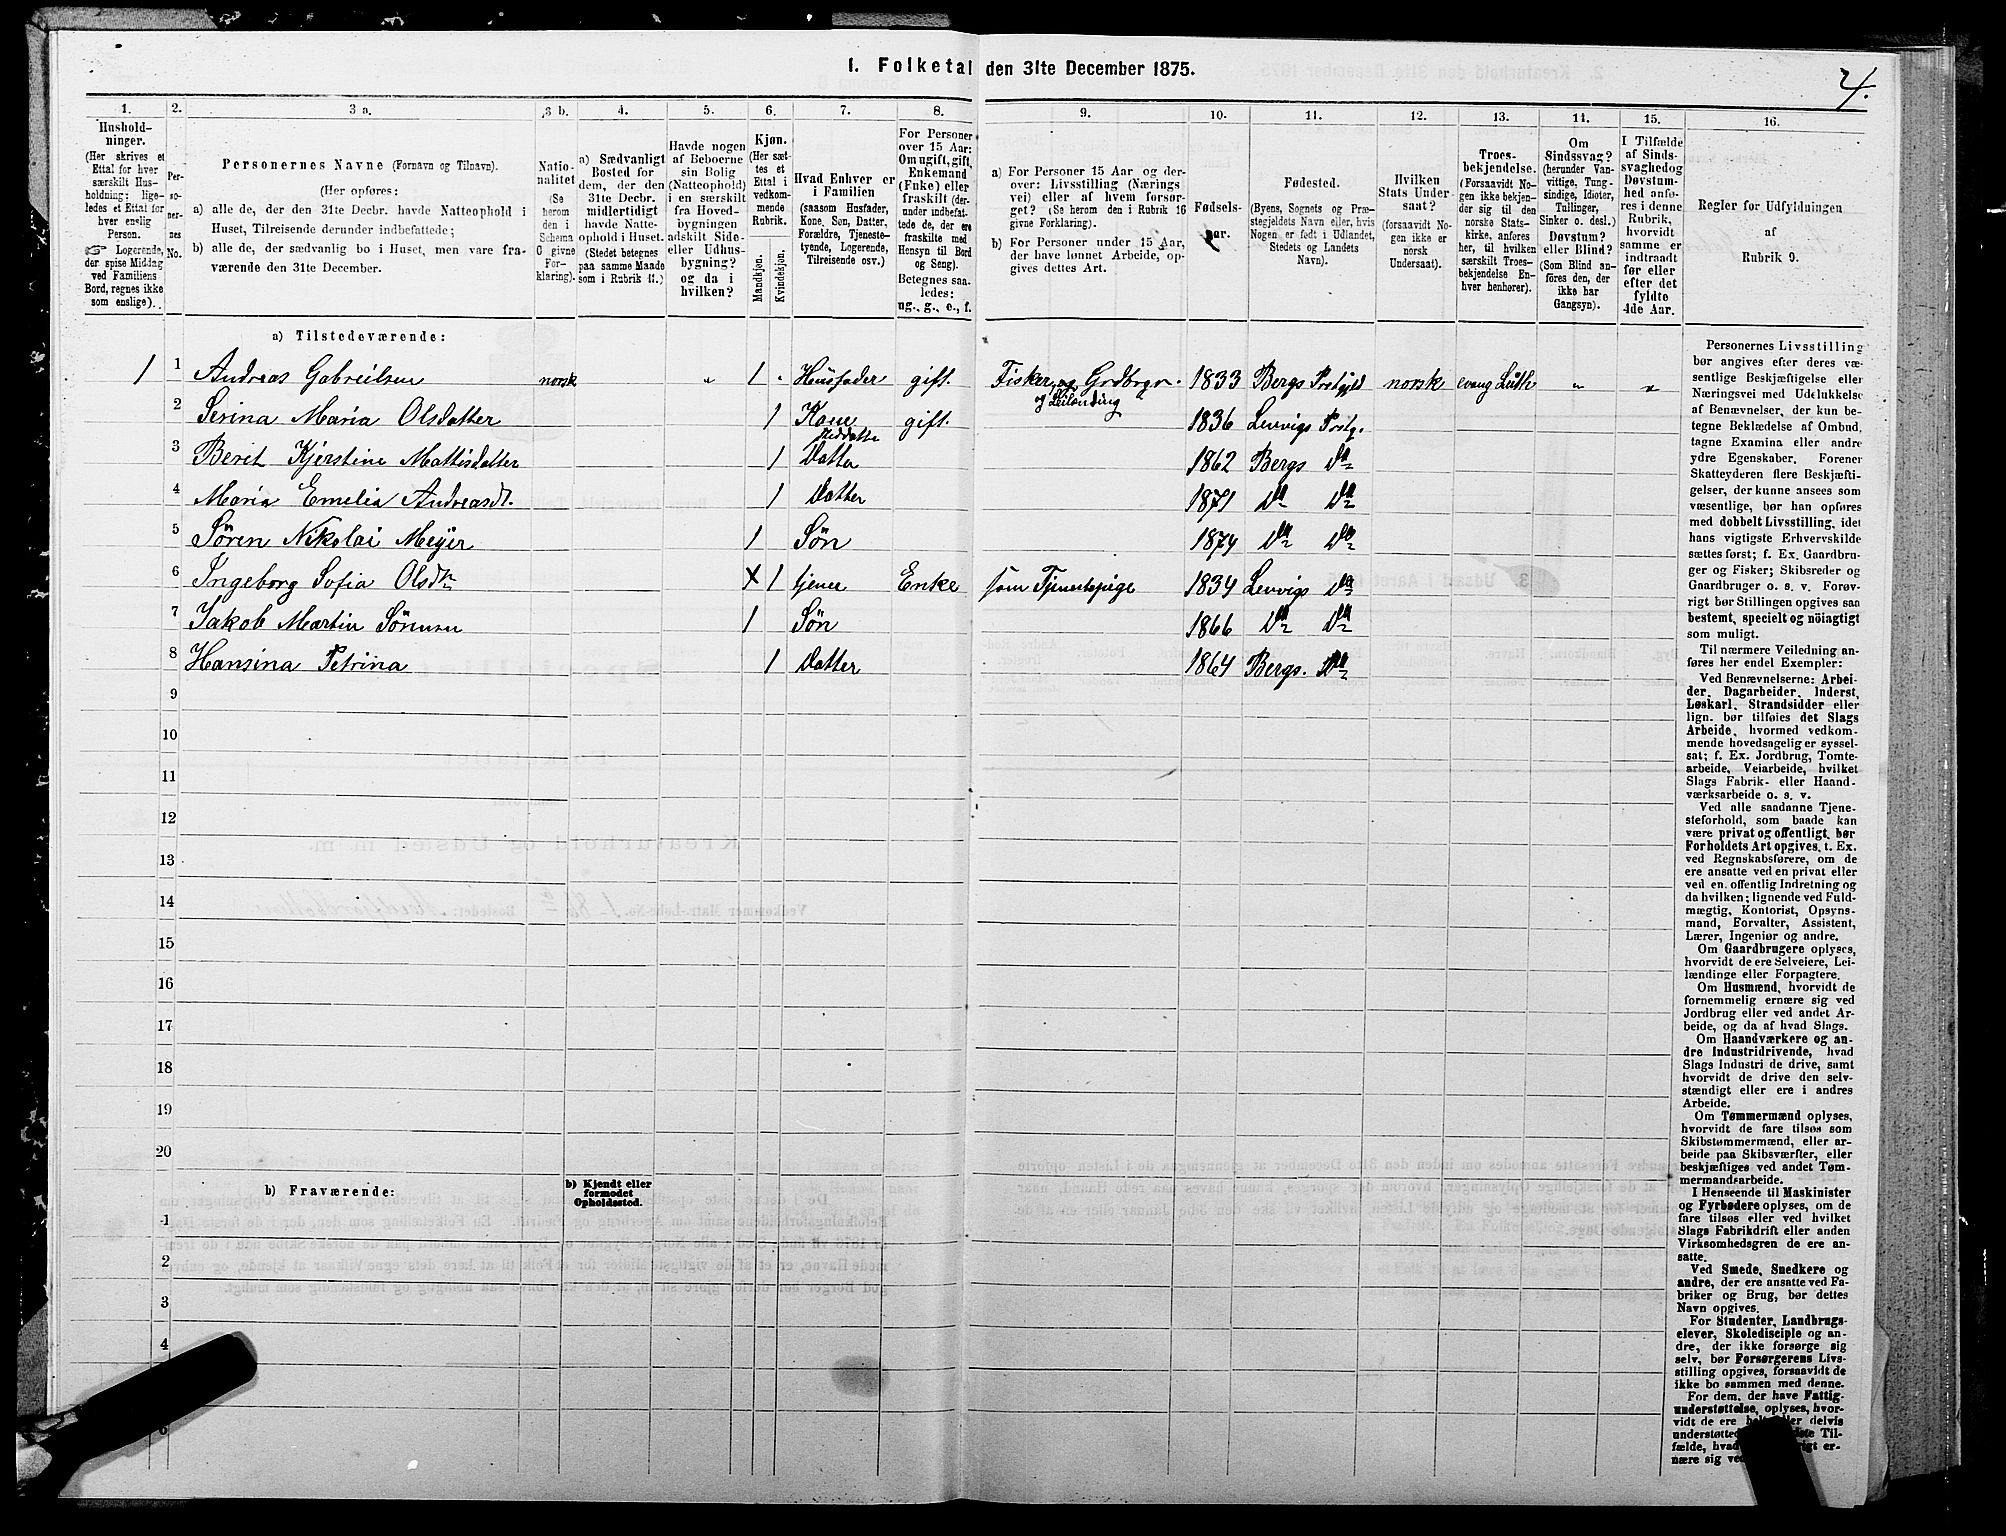 1. Folketal den 31te December 1875.
4.
1.
2.
3 a.
3 b.
4.
5.
6.
7.
8.
9.
10.
11.
12.
13.
14.
15.
16.
Hushold-
ninger.
(Her skrives et
Ettal for hver
særskilt Hus-
holdning; lige-
ledes et Ettal for
hver enslig
Person.
☞ Logerende,
der spise Middag
ved Familiens
Bord, regnes ikke
som enslige).
Per-
so-
ner-
nes
No.
Personernes Navne (Fornavn og Tilnavn).
(Her opføres:
a) alle de, der den 31te Decbr. havde Natteophold i
Huset, Tilreisende derunder indbefattede;
b) alle de, der sædvanlig bo i Huset, men vare fra-
værende den 31te December.
Natio-
nalitet
(Se
herom
den i
Schema
O givne
For-
klaring).
a) Sædvanligt
Bosted for
dem, der den
31te Decbr.
midlertidigt
havde Natte-
ophold i Huset.
(Stedet betegnes
paa samme Maade
som i Rubrik 11.)
Havde nogen
af Beboerne
sin Bolig
(Natteophold)
i en særskilt
fra Hoved-
bygningen
adskilt Side-
eller Udhus-
bygning?
og da i
hvilken?
Kjøn.
(Her sæt-
tes et
Ettal i
vedkom-
mende
Rubrik.
Mandkjøn.
Kvindekjøn.
Hvad Enhver er
i Familien
(saasom Husfader,
Kone, Søn, Datter,
Forældre, Tjeneste-
tyende, Logerende,
Tilreisende osv.)
For Personer
over 15 Aar:
Om ugift, gift,
Enkemand
(Enke) eller
fraskilt (der-
under indbefat-
tede de, der ere
fraskilte med
Hensyn til Bord
og Seng).
Betegnes saa-
ledes:
ug., g., e., f.
a) For Personer 15 Aar og der-
over: Livsstilling (Nærings
vei) eller af hvem forsør-
get? (Se herom den i Rubrik 16
givne Forklaring).
b) For Personer under 15 Aar,
der have lønnet Arbeide, op-
gives dettes Art.
Fødsels-
aar.
Fødested.
(Byens, Sognets og Præ-
stegjeldets Navn eller, hvis
Nogen er født i Udlandet,
Stedets og Landets
Navn).
Hvilken
Stats Under-
saat?
(forsaavidt No-
gen ikke er
norsk
Undersaat).
Troes-
bekjendelse.
(Forsaavidt No-
gen ikke bekjen-
der sig til den
norske Stats-
kirke, anføres
her, til hvilken
særskilt Troes-
bekjendelse En-
hver henhører).
Om
Sindssvag?
(herunder Van-
vittige, Tung-
sindige, Idioter,
Tullinger,
Sinker o. desl.)
Døvstum?
eller Blind?
(Som Blind an-
føres den, der
ikke har
Gangsyn).
I Tilfælde
af Sinds-
svaghed og
Døvstum-
hed anfø-
res i denne
Rubrik,
hvorvidt
samme er
indtraadt
før eller
efter det
fyldte
4de Aar.
Regler for Udfyldningen
af
Rubrik 9.
a) Tilstedeværende:
1 1 Andreas Gabreilsen norsk „ 1 „ Husfader gift. Fisker og Grdbrgr. 1833 Bergs Prstgjld norsk evang Luth „ „
og Leilænding
2 Serina Maria Olsdatter 1 Kone gift. 1836 Lenvigs Prstg.
3 Berit Kjerstine Mattisdatter 1 Steddatte
Datter 1862 Bergs Do
4 Maria Emelia Andreasdt. 1 Datter 1871 Do Do
5 Søren Nikolai Meyer 1 Søn 1874 Do Do
6 Ingeborg Sofia Olsdtr X 1 tjener Enke som Tjenestepige 1834 Lenvigs Do
7 Jakob Martin Sørensen 1 Søn 1866 Do Do
8 Hansina Petrina 1 Datter 1864 Bergs. Do
9
10
11
12
13
14
15
16
17
18
19
20
b) Fraværende:
b) Kjendt eller
formodet
Opholdssted.
1
2
3
4
6
Personernes Livsstilling
bør angives efter deres væ-
sentlige Beskjæftigelse eller
Næringsvei med Udelukkelse
af Benævnelser, der kun be-
tegne Beklædelse af Ombud,
tagne Examina eller andre
ydre Egenskaber. Forener
Skatteyderen flere Beskjæfti-
gelser, der kunne ansees som
væsentlige, bør han opføres
med dobbelt Livsstilling, idet
hans vigtigste Erhvervskilde
sættes først; f. Ex. Gaardbru-
ger og Fisker; Skibsreder og
Gaardbruger o. s. v. Forøv-
rigt bør Stillingen opgives saa
bestemt, specielt og nöiagtigt
som muligt.
Til nærmere Veiledning an-
føres her endel Exempler:
Ved Benævnelserne: Arbei-
der, Dagarbeider, Inderst,
Løskarl, Strandsidder eller
lign. bør tilføies det Slags
Arbeide, hvormed vedkom-
mende hovedsagelig er syssel-
sat; f. Ex. Jordbrug, Tomte-
arbeide, Veiarbeide, hvilket
Slags Fabrik- eller Haand-
værksarbeide o. s. v.
Ved alle saadanne Tjene-
steforhold, som baade kan
være privat og offentligt, bør
Forholdets Art opgives, t. Ex.
ved Regnskabsførere, om de
ere ansatte ved en privat eller
ved en offentlig Indretning og
da hvilken; lignende ved Fuld-
mægtig, Kontorist, Opsyns-
mand, Forvalter, Assistent,
Lærer, Ingeniør og andre.
Om Gaardbrugere oplyses,
hvorvidt de ere Selveiere, Lei-
lændinge eller Forpagtere.
Om Husmænd, hvorvidt de
fornemmelig ernære sig ved
Jordbrug eller ved andet Ar-
beide, og da af hvad Slags.
Om Haandværkere og an-
dre Industridrivende, hvad
Slags Industri de drive, samt
hvorvidt de drive den selv-
stændigt eller ere i andres
Arbeide.
Om Tømmermænd oplyses,
hvorvidt de fare tilsøs som
Skibstømmermænd, eller ar-
beide paa Skibsværfter, eller
beskjæftiges ved andet Tøm-
mermandsarbeide.
I Henseende til Maskinister
og Fyrbødere oplyses, om de
fare tilsøs eller ved hvilket
Slags Fabrikdrift eller anden
Virksomhedsgren de ere an-
satte.
Ved Smede, Snedkere og
andre, der ere ansatte ved Fa-
briker og Brug, bør dettes
Navn opgives.
For Studenter, Landbrugs-
elever, Skoledisciple og an-
dre, der ikke forsørge sig
selv, bør Forsørgerens Livs-
stilling opgives, forsaavidt de
ikke bo sammen med denne.
For dem, der have Fattig-
understøttelse, oplyses, hvor-
vidt de ere eller delvis
Til-
fælde, er-
nære sig